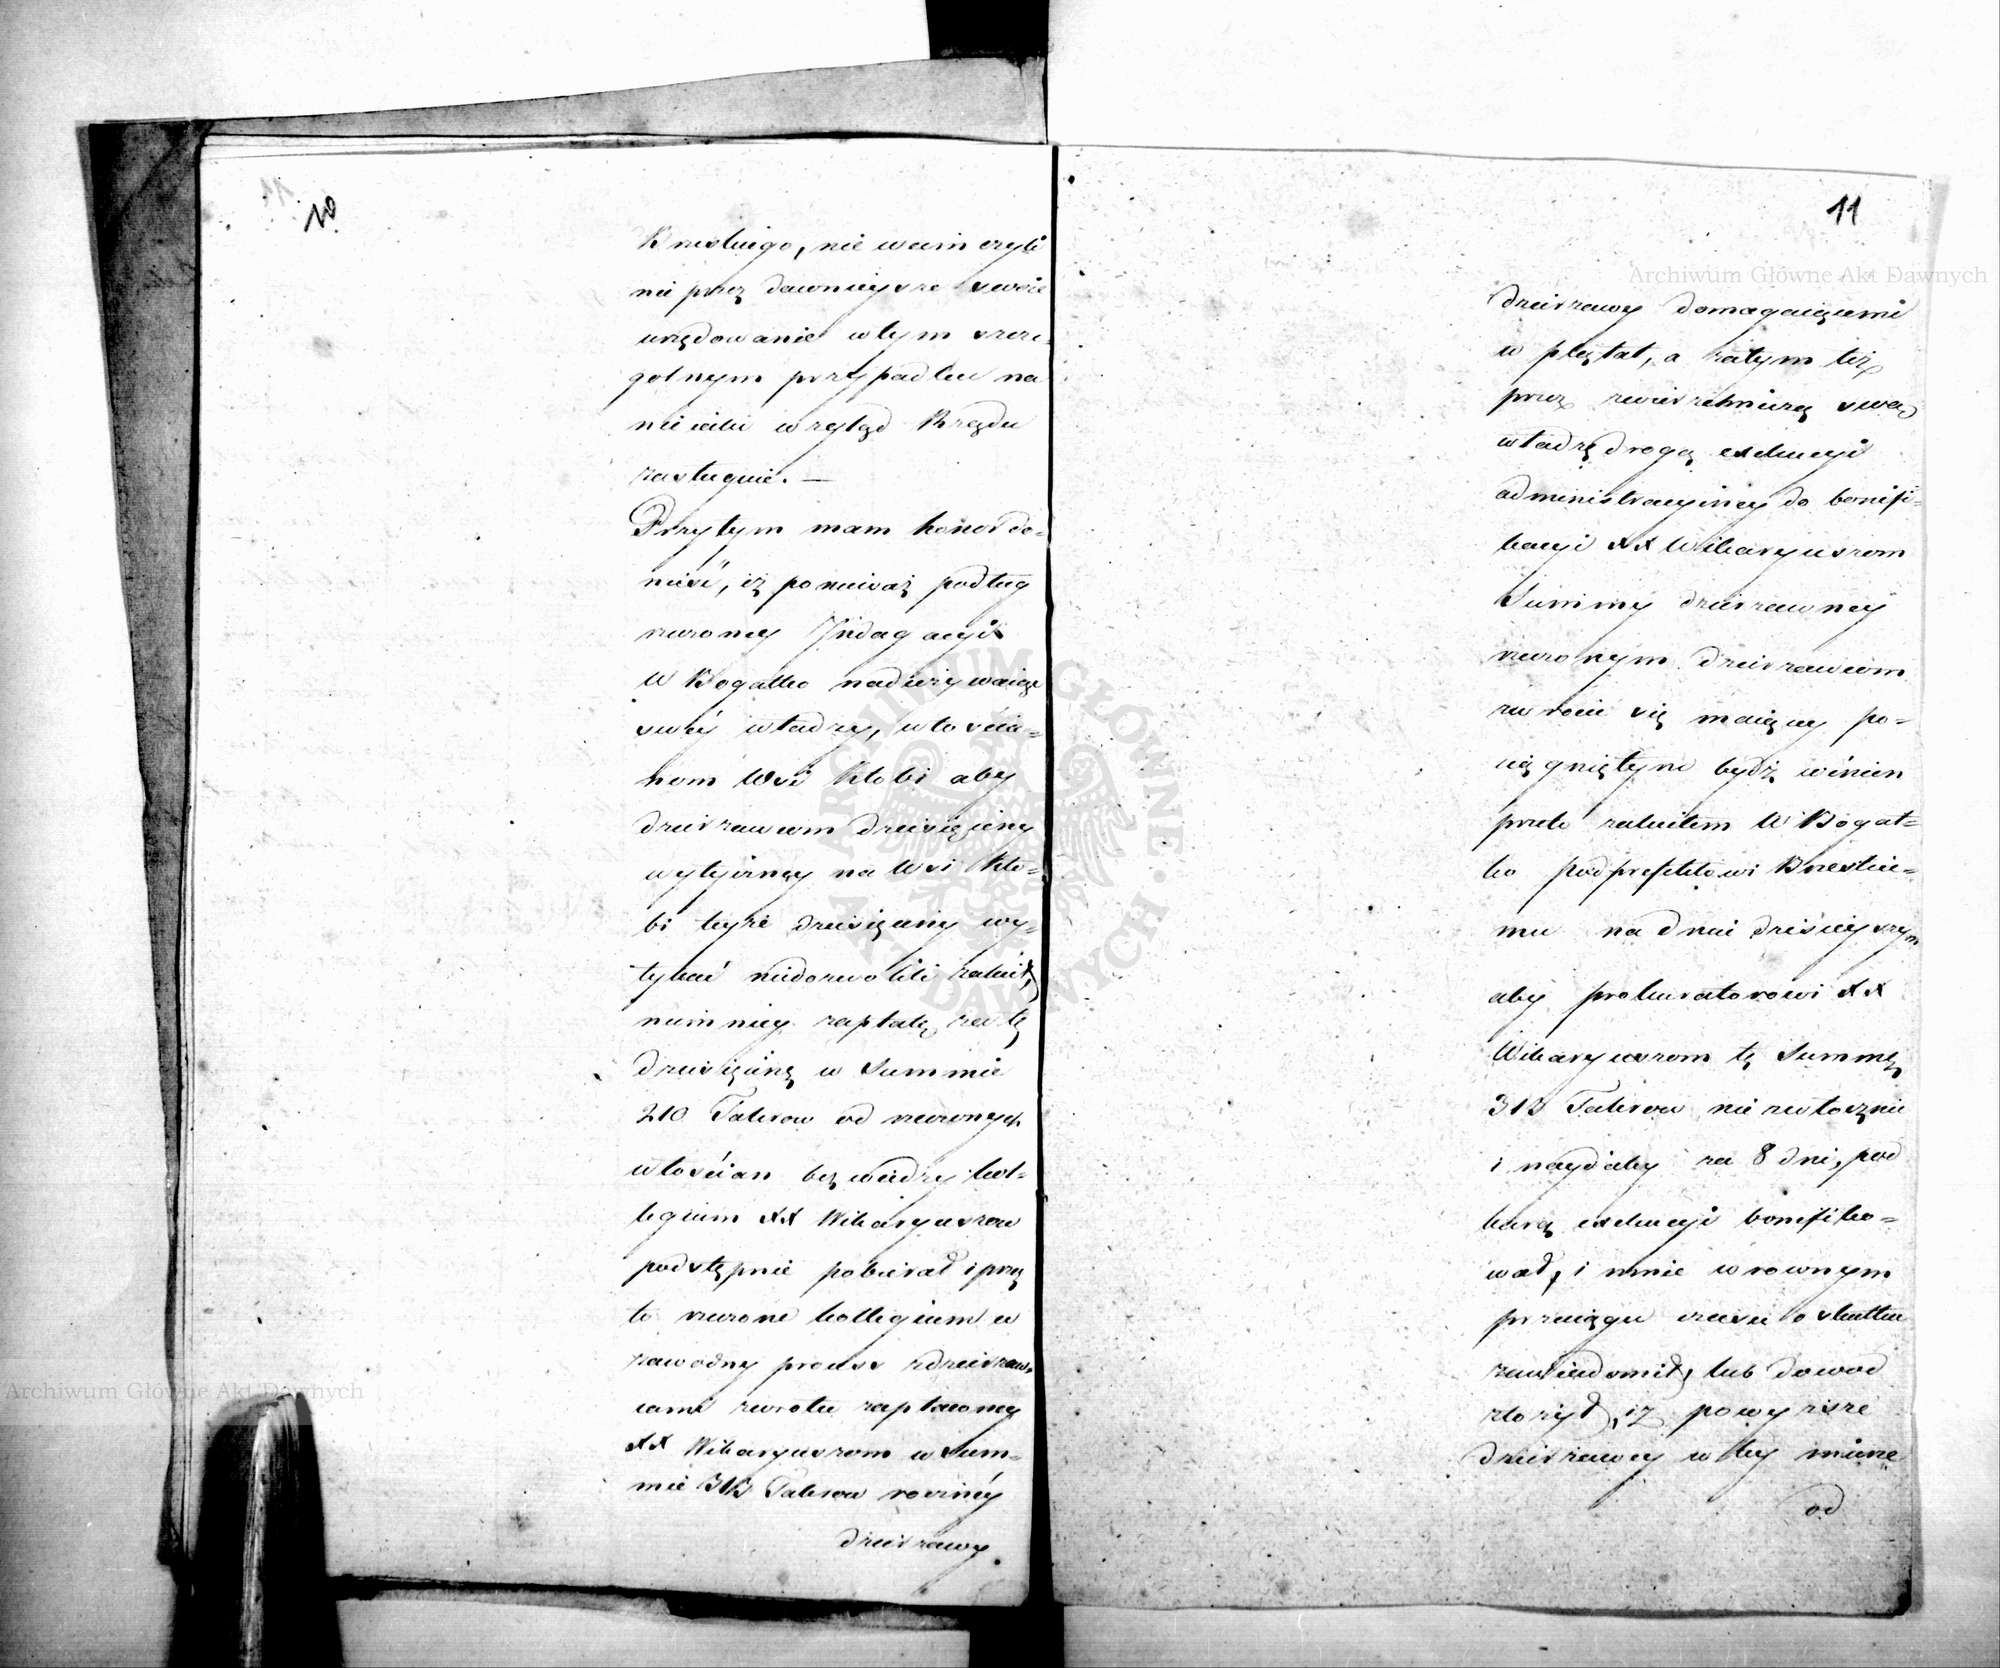 10
Brzeskiego, nie wiem czyli
nie przez dawnieysze swoie
urzędowanie w tym szcze-
gólnym przypadku na
nieiaki wzgląd Rządu
zasługuie. —
Przytym mam honor do-
nieść, iż ponieważ podług
rzeczoney Indagacyi
W Bogatko nadużywaiąc
swéy władzy, włościa-
nom Wsi Kłobi aby
dzierzawcom dziesięciny
wytyczney na Wsi Kło-
bi teyże dziesięciny wy-
tykać niedozwolili zakazał,
niemniey zapłatę za tę
dziesięcinę w Summie
210 Talerow od rzeczonych
włościan bez wiedzy kol-
legium XX Wikaryuszow
podstępnie pobierał i przez
to rzeczone kollegium w
zawodny proces z dzierzaw-
cami zwrotu zapłaconey
XX Wikaryuszom w Sum-
mie 313 Talerow roczney
dzierzawy
11
dzierzawy domagaiącemi
w plątał, a zatym też
przez zwierzchniczą swą
władzę drogą exekucyi
administracyiney do bonifi-
kacyi XX Wikaryuszom
Summy dzierzawney
rzeczonym dzierzawcom
zwrócić się maiącey po-
ciągniętym bydź winien
przeto zaleciłem W Bogat-
ko Podprefektowi Brzeskie-
mu na dniu dzisieyszym
aby prokuratorowi XX
Wikaryuszom tę Summę
313 Talerow nie zwłocznie
i naydaley za 8 dni, pod
karą exekucyi bonifiko-
wał, i mnie w rownym
przeciągu czasu o skutku
zawiadomił, lub dowod
złożył, iż powyższe
dzierzawcy w tey mierze
od
Archiwum Główne Akt Dawnych
Archiwum Główne Akt Dawnych
ARCHIWUM GŁÓWNE AKT DAWNYCH